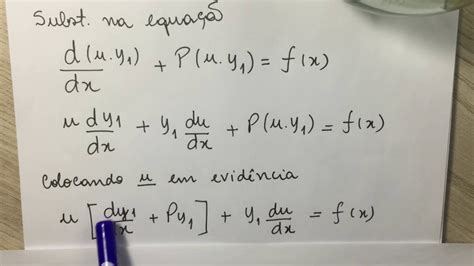 Subst. na equaçã
d(u.y₁)/dx + P(u.y₁) = f(x)
u dy₁/dx + y₁ du/dx + P(u.y₁) = f(x)
Colocando u em evidência
u [dy₁/dx + Py₁] + y₁ du/dx = f(x)